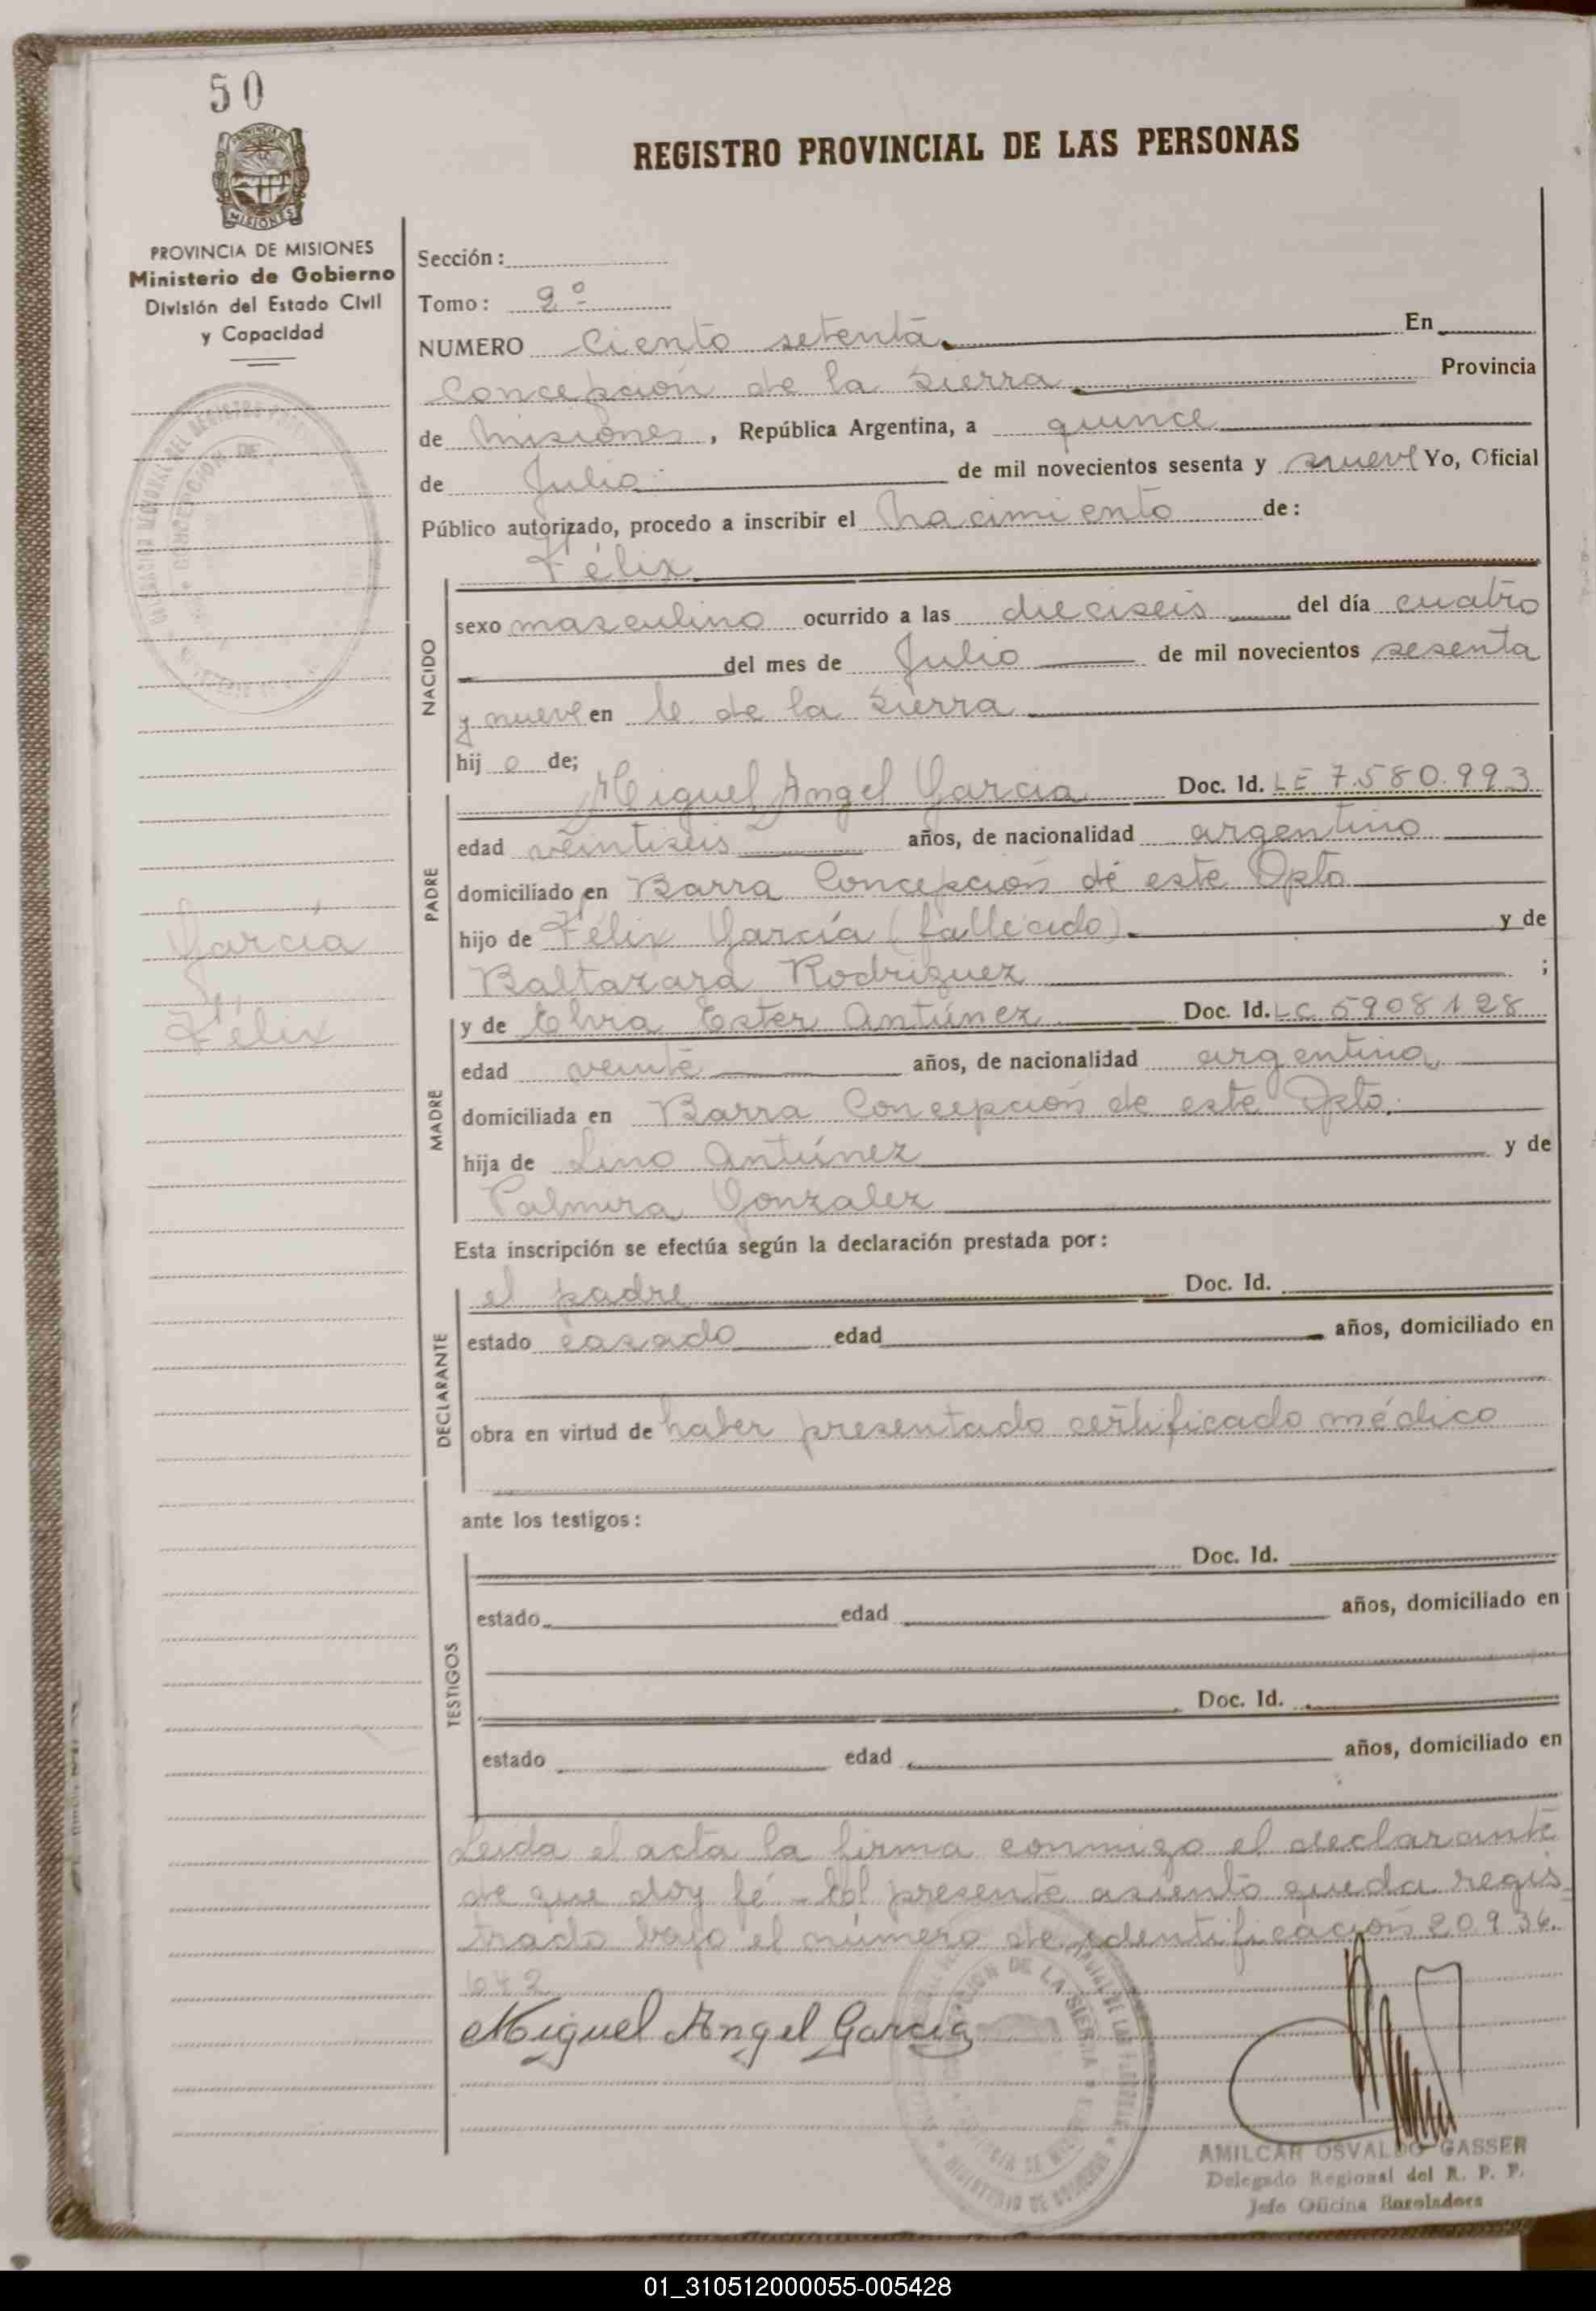 50
REGISTRO PROVINCIAL DE LAS PERSONAS
PROVINCIA DE MISIONES
Ministerio de Gobierno
División del Estado Civil
y Capacidad
García
Félix
Sección:
Tomo: 2º
NUMERO Ciento setenta. En
Concepción de la Sierra Provincia
de Misiones, República Argentina, a quince
de Julio de mil novecientos sesenta y nueve Yo, Oficial
Público autorizado, procedo a inscribir el nacimiento de:
Félix
NACIDO
sexo masculino ocurrido a las dieciseis del día cuatro
del mes de Julio de mil novecientos sesenta
y nueve en C de la Sierra
hij o de;
PADRE
Miguel Angel Garcia Doc. Id. LE 7.580.993
edad veintiseis años, de nacionalidad argentino
domiciliado en Barra Concepción de este Dpto
hijo de Félix García (fallecido). y de
Baltazara Rodriguez ;
MADRE
y de Elvia Ester Antúnez Doc. Id. LC 5908128
edad veinte años, de nacionalidad argentina,
domiciliada en Barra Concepción de este Dpto.
hija de Lino Antúnez y de
Palmira Gonzalez
Esta inscripción se efectúa según la declaración prestada por:
DECLARANTE
el padre Doc. Id.
estado casado edad años, domiciliado en
obra en virtud de haber presentado certificado médico
ante los testigos:
TESTIGOS
Doc. Id.
estado edad años, domiciliado en
Doc. Id.
estado edad años, domiciliado en
Leida el acta la firma conmigo el declarante
de que doy fé - El presente asiento queda regis
trado bajo el número de identificación 20.936.
642
Miguel Angel Garcia
AMILCAR OSVALDO GASSER
Delegado Regional del R. P. P.
Jefe Oficina Enroladora
01_310512000055-005428